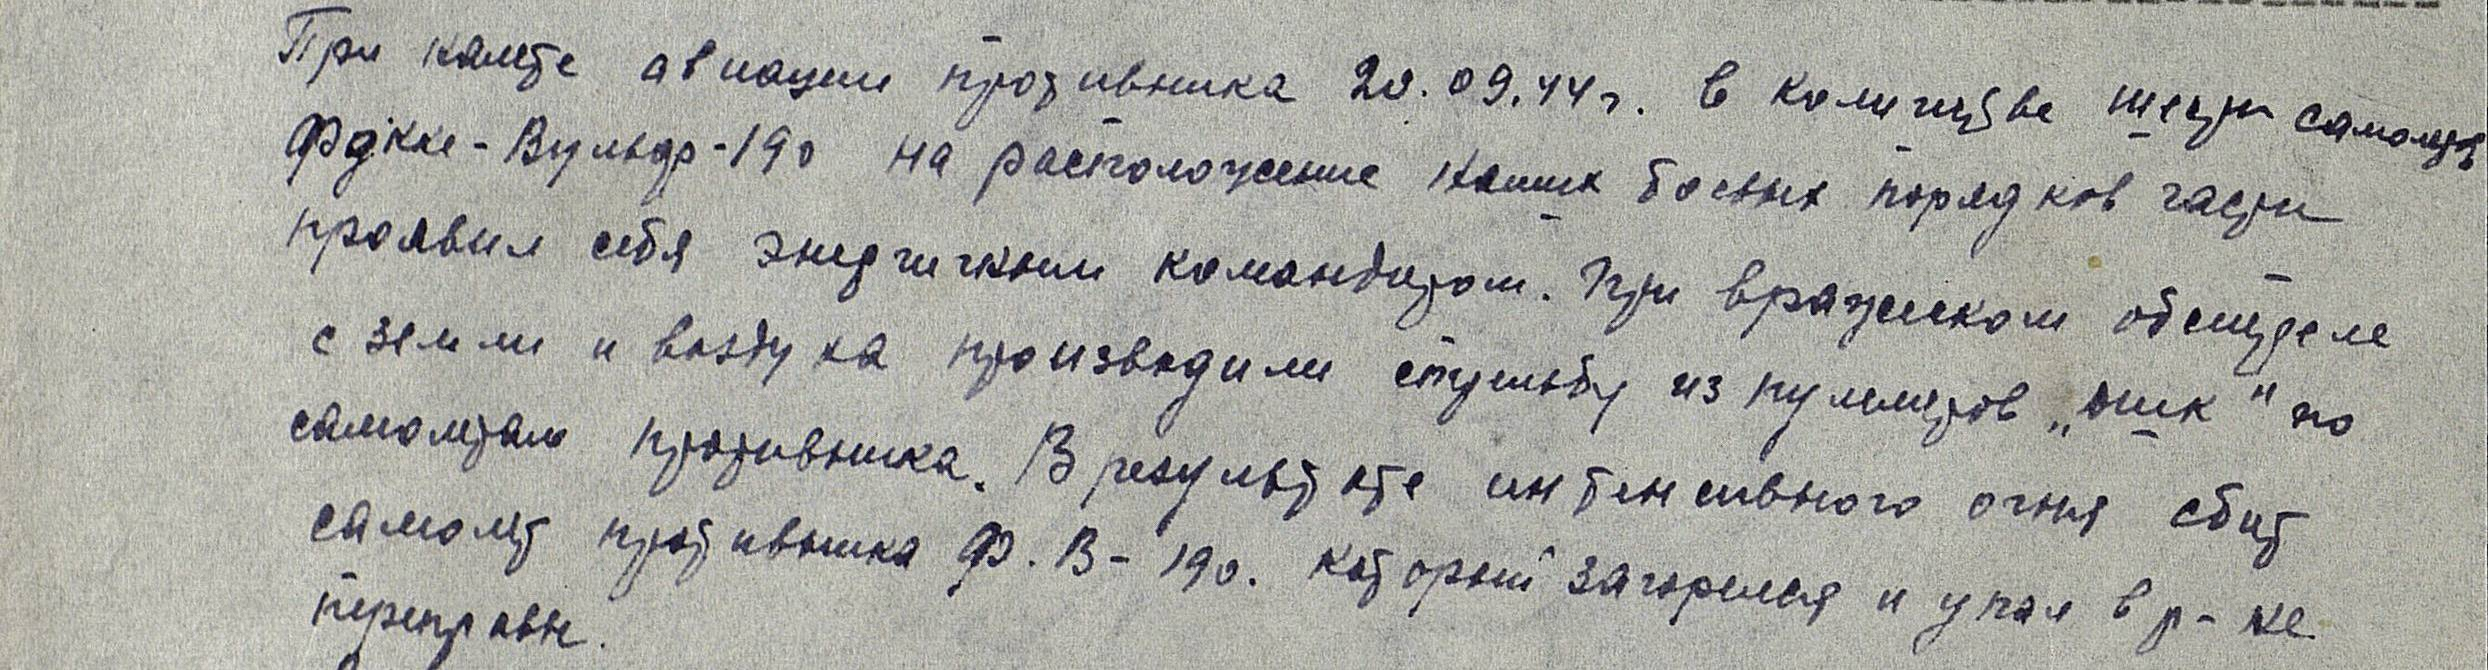 При налете авиации противника 20.09.44 г. в количестве шести самолетов
Фокке-Вульф-190 на расположение наших боевых порядков части
проявил себя энергичным командиром. При вражеском обстреле
с земли и воздуха производили стрельбу из пулеметов „ДШК" по
самолетам противника. В результате интенсивного огня сбит
самолет противника Ф.В-190. который загорелся и упал в р-не
переправы.